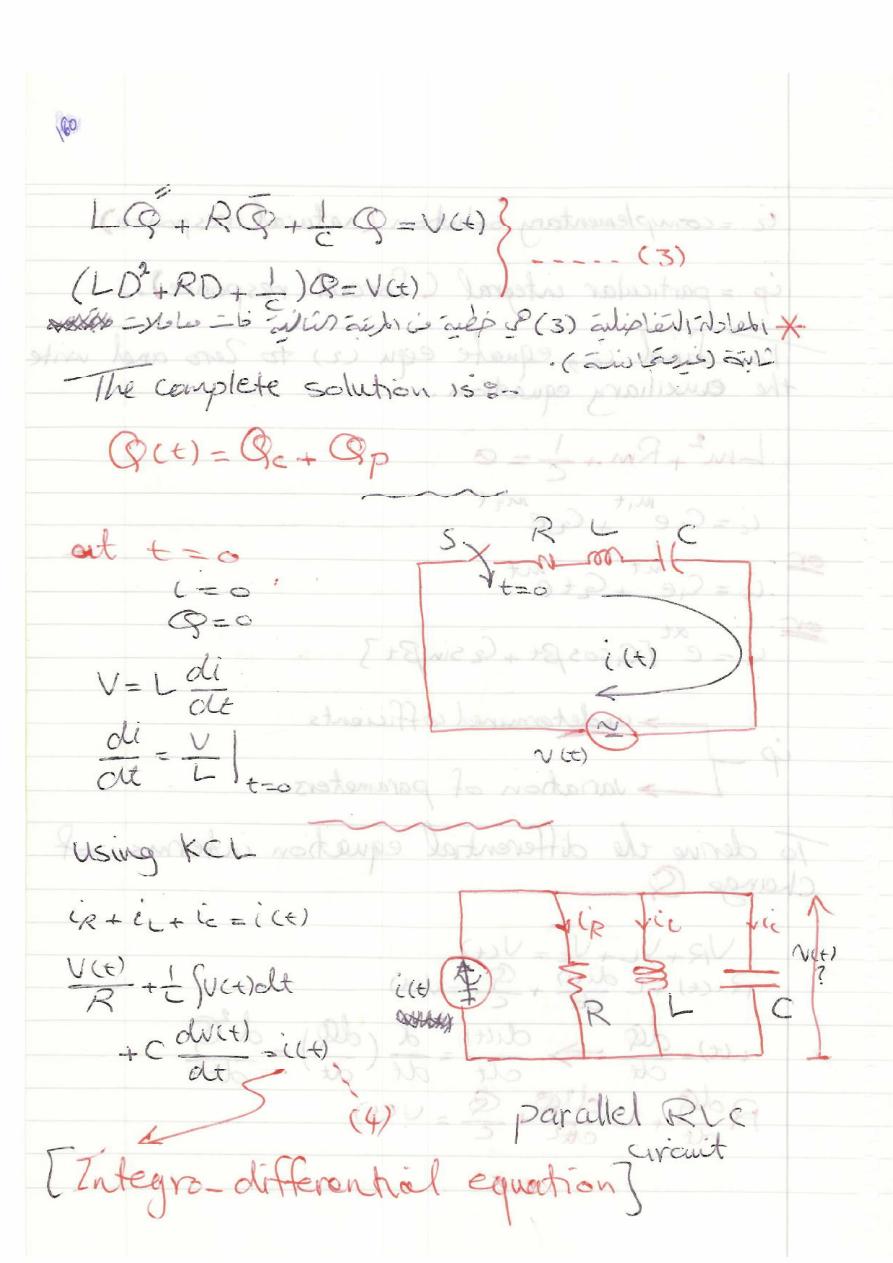 160
LQ̿ + RQ̄ + 1/C Q = V(t)
(LD² + RD + 1/C)Q = V(t) } ----- (3)
* المعادلة التفاضلية (3) هي خطية من المرتبة الثانية ذات معاملات
ثابتة (غير متجانسة).
The complete solution is:-
Q(t) = Qc + Qp
at t = 0
i = 0
Q = 0
V = L di/dt
di/dt = V/L |t=0
S R L C
t=0
i(t)
v(t)
using KCL
iR + iL + ic = i(t)
V(t)/R + 1/L ∫V(t)dt
+ C dv(t)/dt = i(t)
(4)
i(t) iR iL ic v(t)
?
R L C
parallel RLC
circuit
[Integro-differential equation]